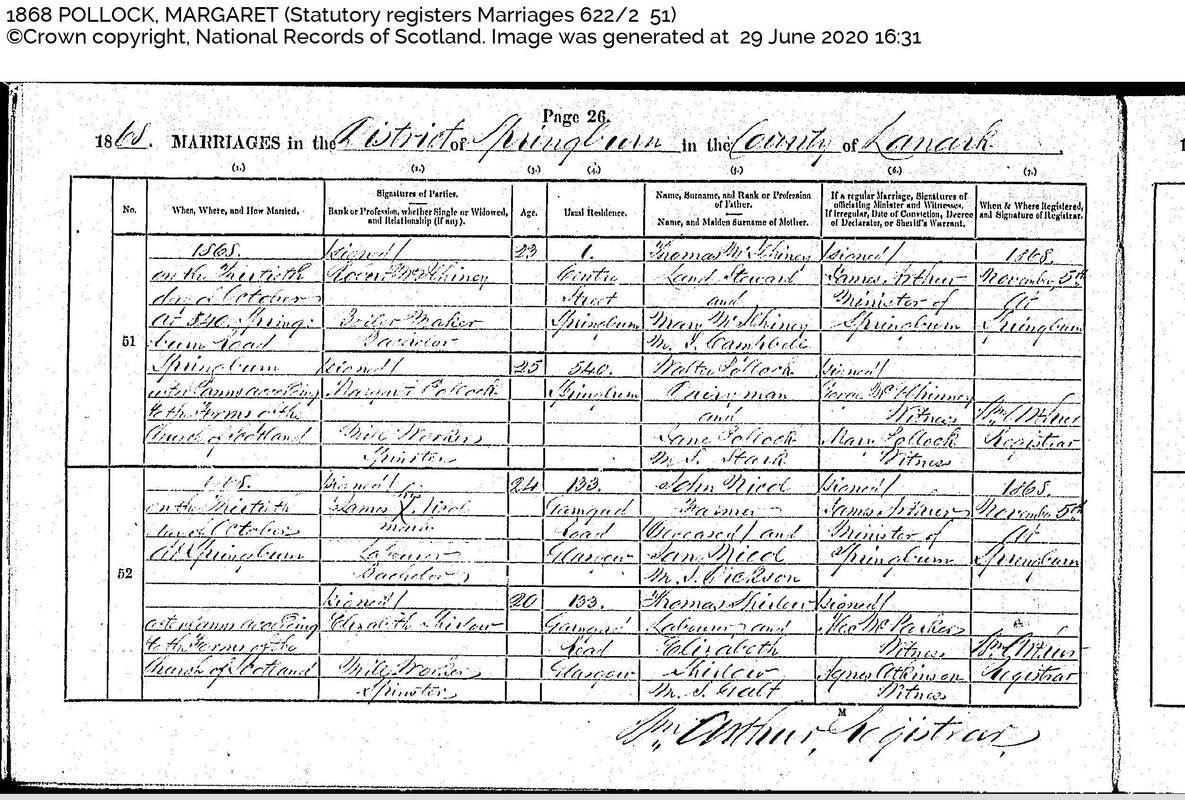 1868 POLLOCK, MARGARET (Statutory registers Marriages 622/2 51)
©Crown copyright, National Records of Scotland. Image was generated at 29 June 2020 16:31
Page 26.
1868. MARRIAGES in the District of Springburn in the County of Lanark
(1.) (2.) (3.) (4.) (5.) (6.) (7.)
No.
When, Where, and How Married.
Signatures of Parties.
Rank or Profession, whether Single or Widowed,
and Relationship (if any).
Age.
Usual Residence.
Name, Surname, and Rank or Profession
of Father.
Name, and Maiden Surname of Mother.
If a regular Marriage, Signatures of
officiating Minister and Witnesses.
If irregular, Date of Conviction, Decree
of Declarator, or Sheriff's Warrant.
When & Where Registered,
and Signature of Registrar.
51
1868.
on the Thirtieth
day of October
At 540 Spring:
burn Road
Springburn
after Banns according
to the Forms of the
Church of Scotland
(signed)
McWhiney
Boiler Maker
Bachelor
(signed)
Margaret Pollock
Mill Worker
Spinster
23
25
1.
Centre
Street
Springburn
540.
Springburn
Thomas McWhiney
Land Steward
and
Mary McWhiney
M. S. Campbell
Walter Pollock
Dairyman
and
Jane Pollock
M. S. Stark
(signed)
James Arthur
Minister of
Springburn
(signed)
McWhinney
Witness
Mary Pollock
Witness
1868.
November 5th
At
Springburn
Wm Arthur
Registrar
52
1868.
on the Thirtieth
day of October
At Springburn
after Banns according
to the Forms of the
Church of Scotland
(signed)
James X Nicol
his
mark
Labourer
Bachelor
(signed)
Elizabeth Shirlow
Mill Worker
Spinster
24
20
133.
Garngad
Road
Glasgow
133.
Garngad
Road
Glasgow
John Nicol
Farmer
(Deceased) and
Nicol
M. S. Dickson
Thomas Shirlow
Labourer and
Elizabeth
Shirlow
M. S. Galt
(signed)
James Arthur
Minister of
Springburn
(signed)
Alex McParker
Witness
Agnes Atkinson
Witness
1868.
November 5th
At
Springburn
Wm Arthur
Registrar
Wm Arthur, Registrar